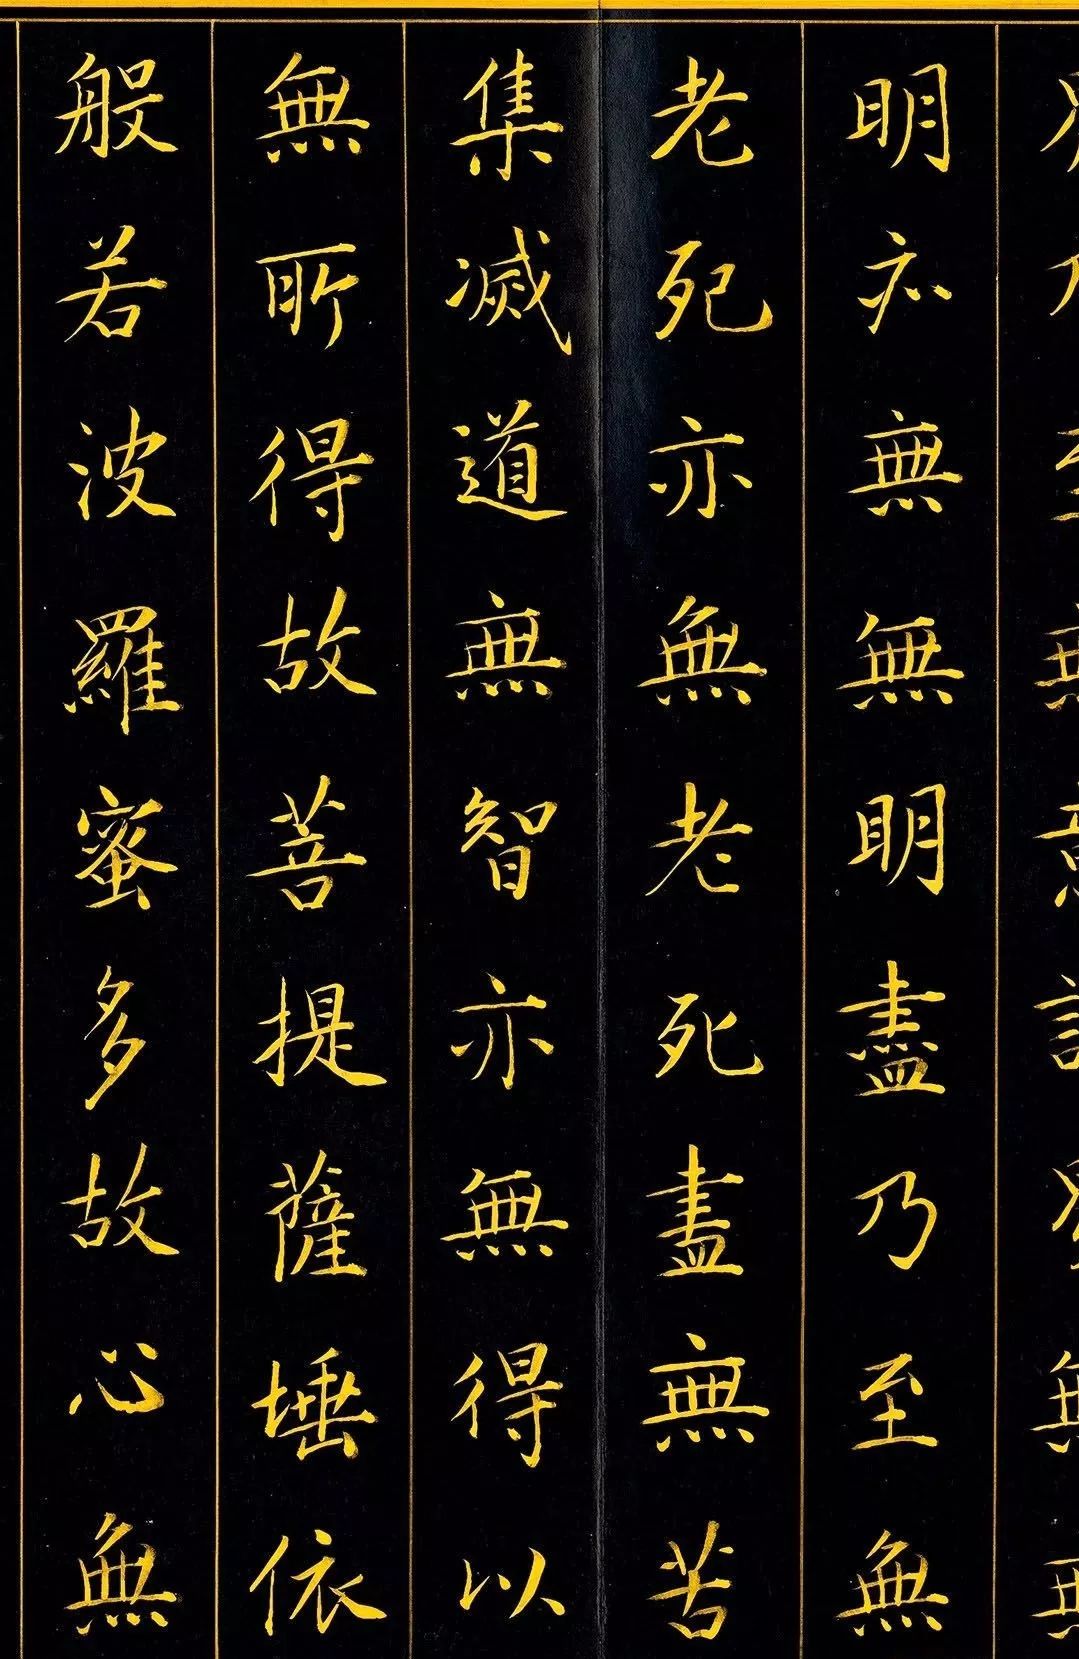 明亦無無明盡乃至無
老死亦無老死盡無苦
集滅道無智亦無得以
無所得故菩提薩埵依
般若波羅蜜多故心無